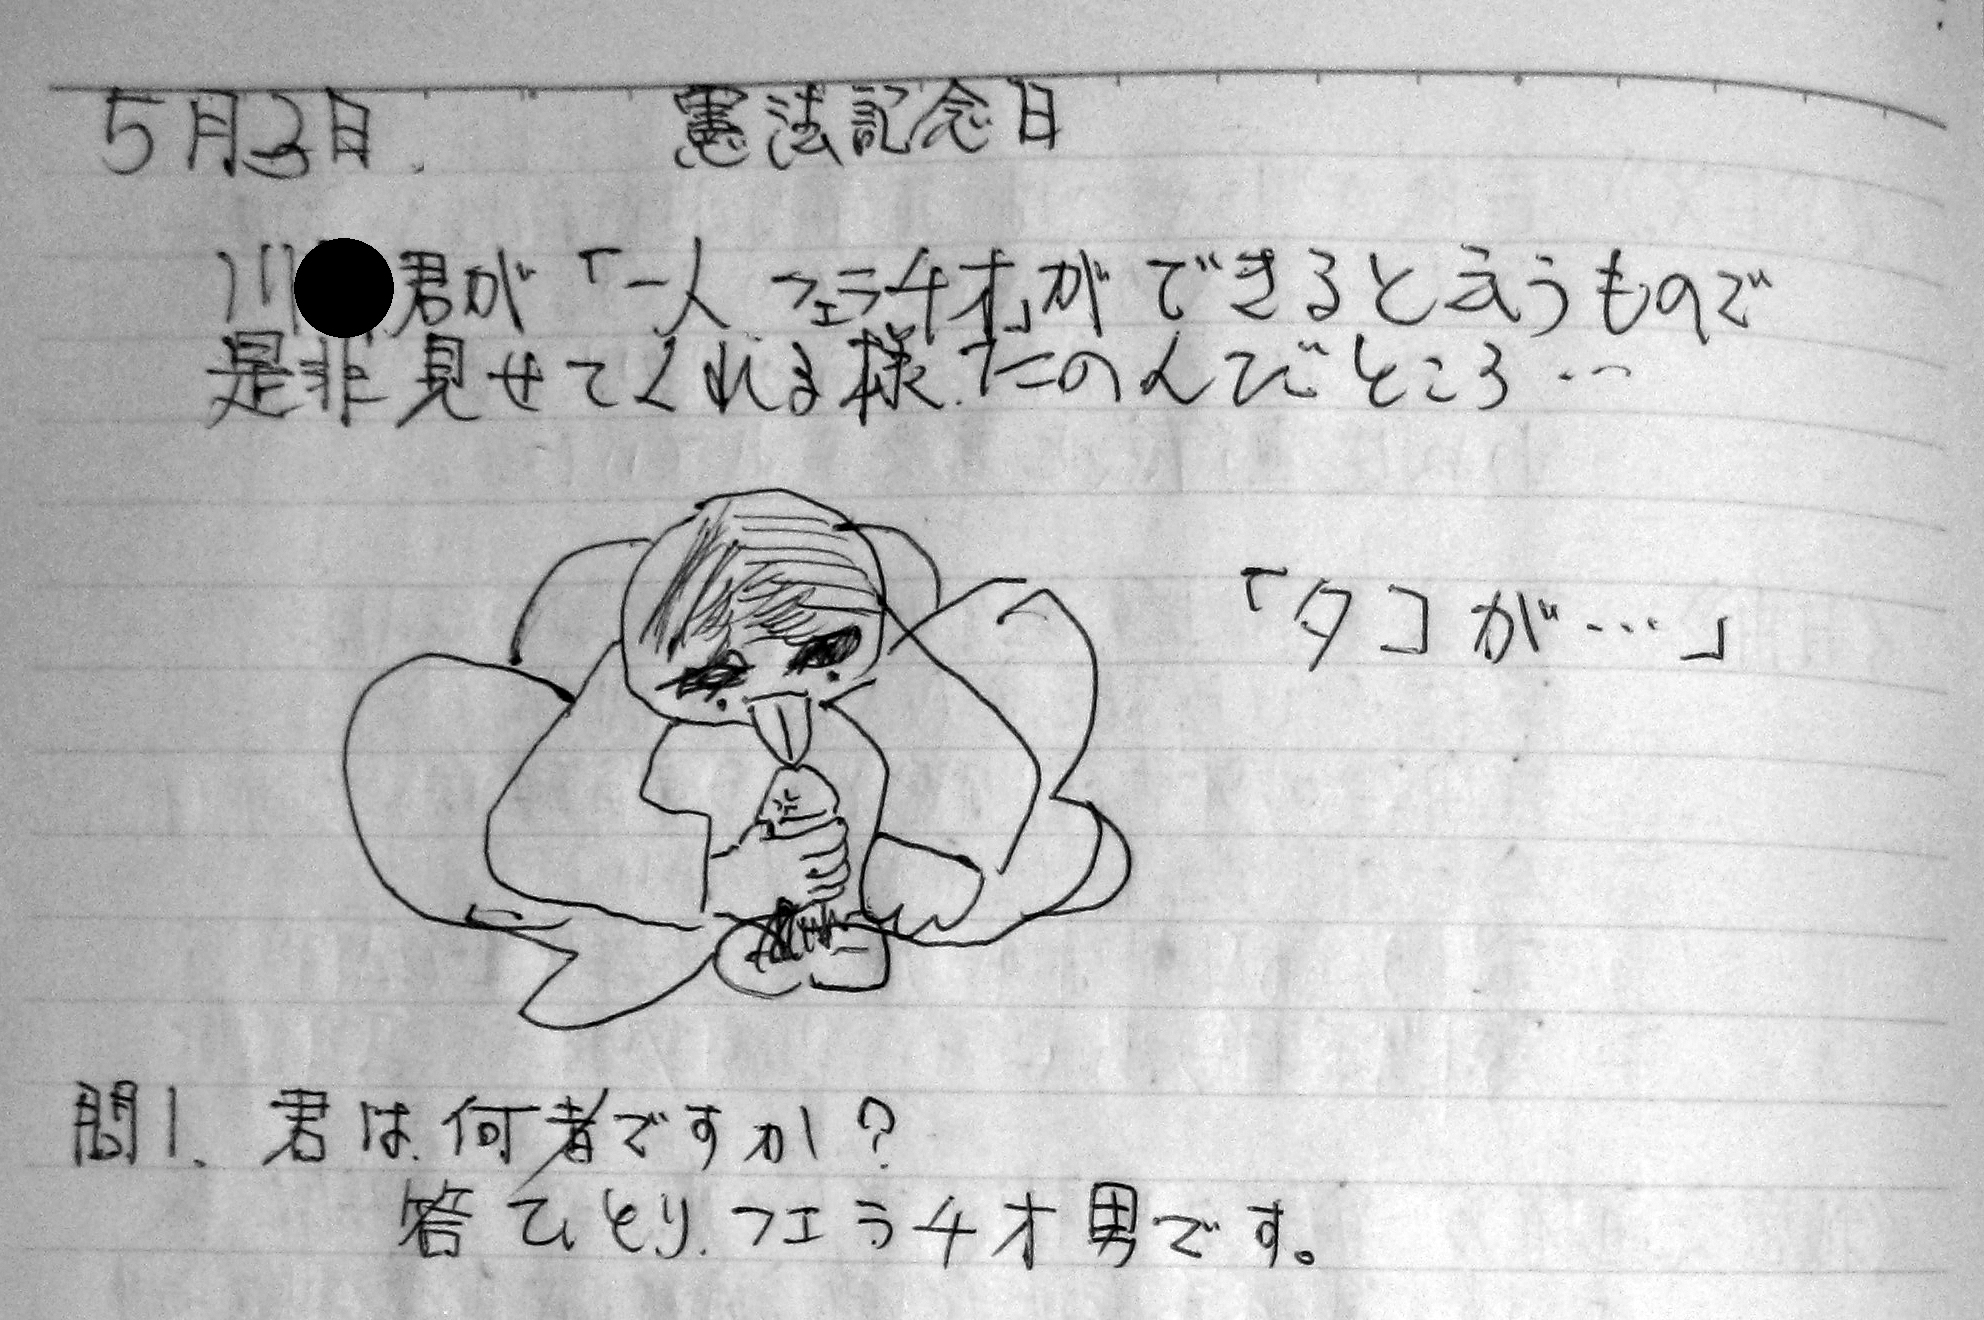 5月3日. 憲法記念日
川 君が「一人フェラチオ」ができると言うもので
是非見せてくれる様.たのんでところ…
「タコが…」
問1. 君は.何者ですか?
答ひとり.フェラチオ男です。